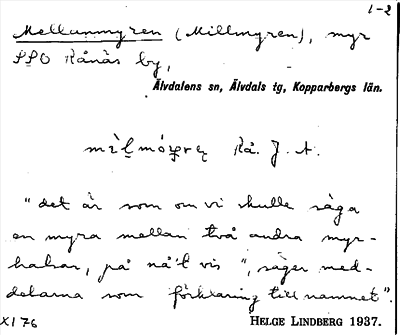 1-2
Mellanmyren (Millmyren), myr
SSO Rånäs by,
Älvdalens sn, Älvdals tg, Kopparbergs län.
Rå. J. A.
"det är som om vi skulle säga
en myra mellan två andra myr-
halsar, på nå't vis", säger med-
delarna som förklaring till namnet".
XI 76
HELGE LINDBERG 1937.